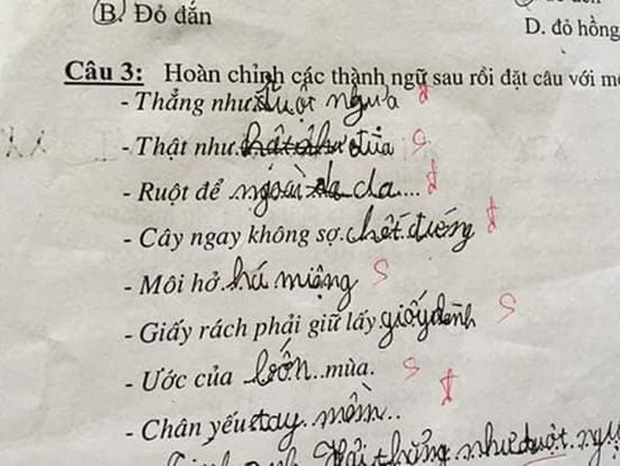 B. Đỏ đắn
D. đỏ hồng
Câu 3: Hoàn chỉnh các thành ngữ sau rồi đặt câu với
- Thẳng như ruột ngựa đ
- Thật như đùa S
- Ruột để ngoài da... đ
- Cây ngay không sợ chết đướng đ
- Môi hở há miệng S
- Giấy rách phải giữ lấy S
- Ước của bốn..mùa. S
- Chân yếu tay mềm.. đ
thẳng như duột